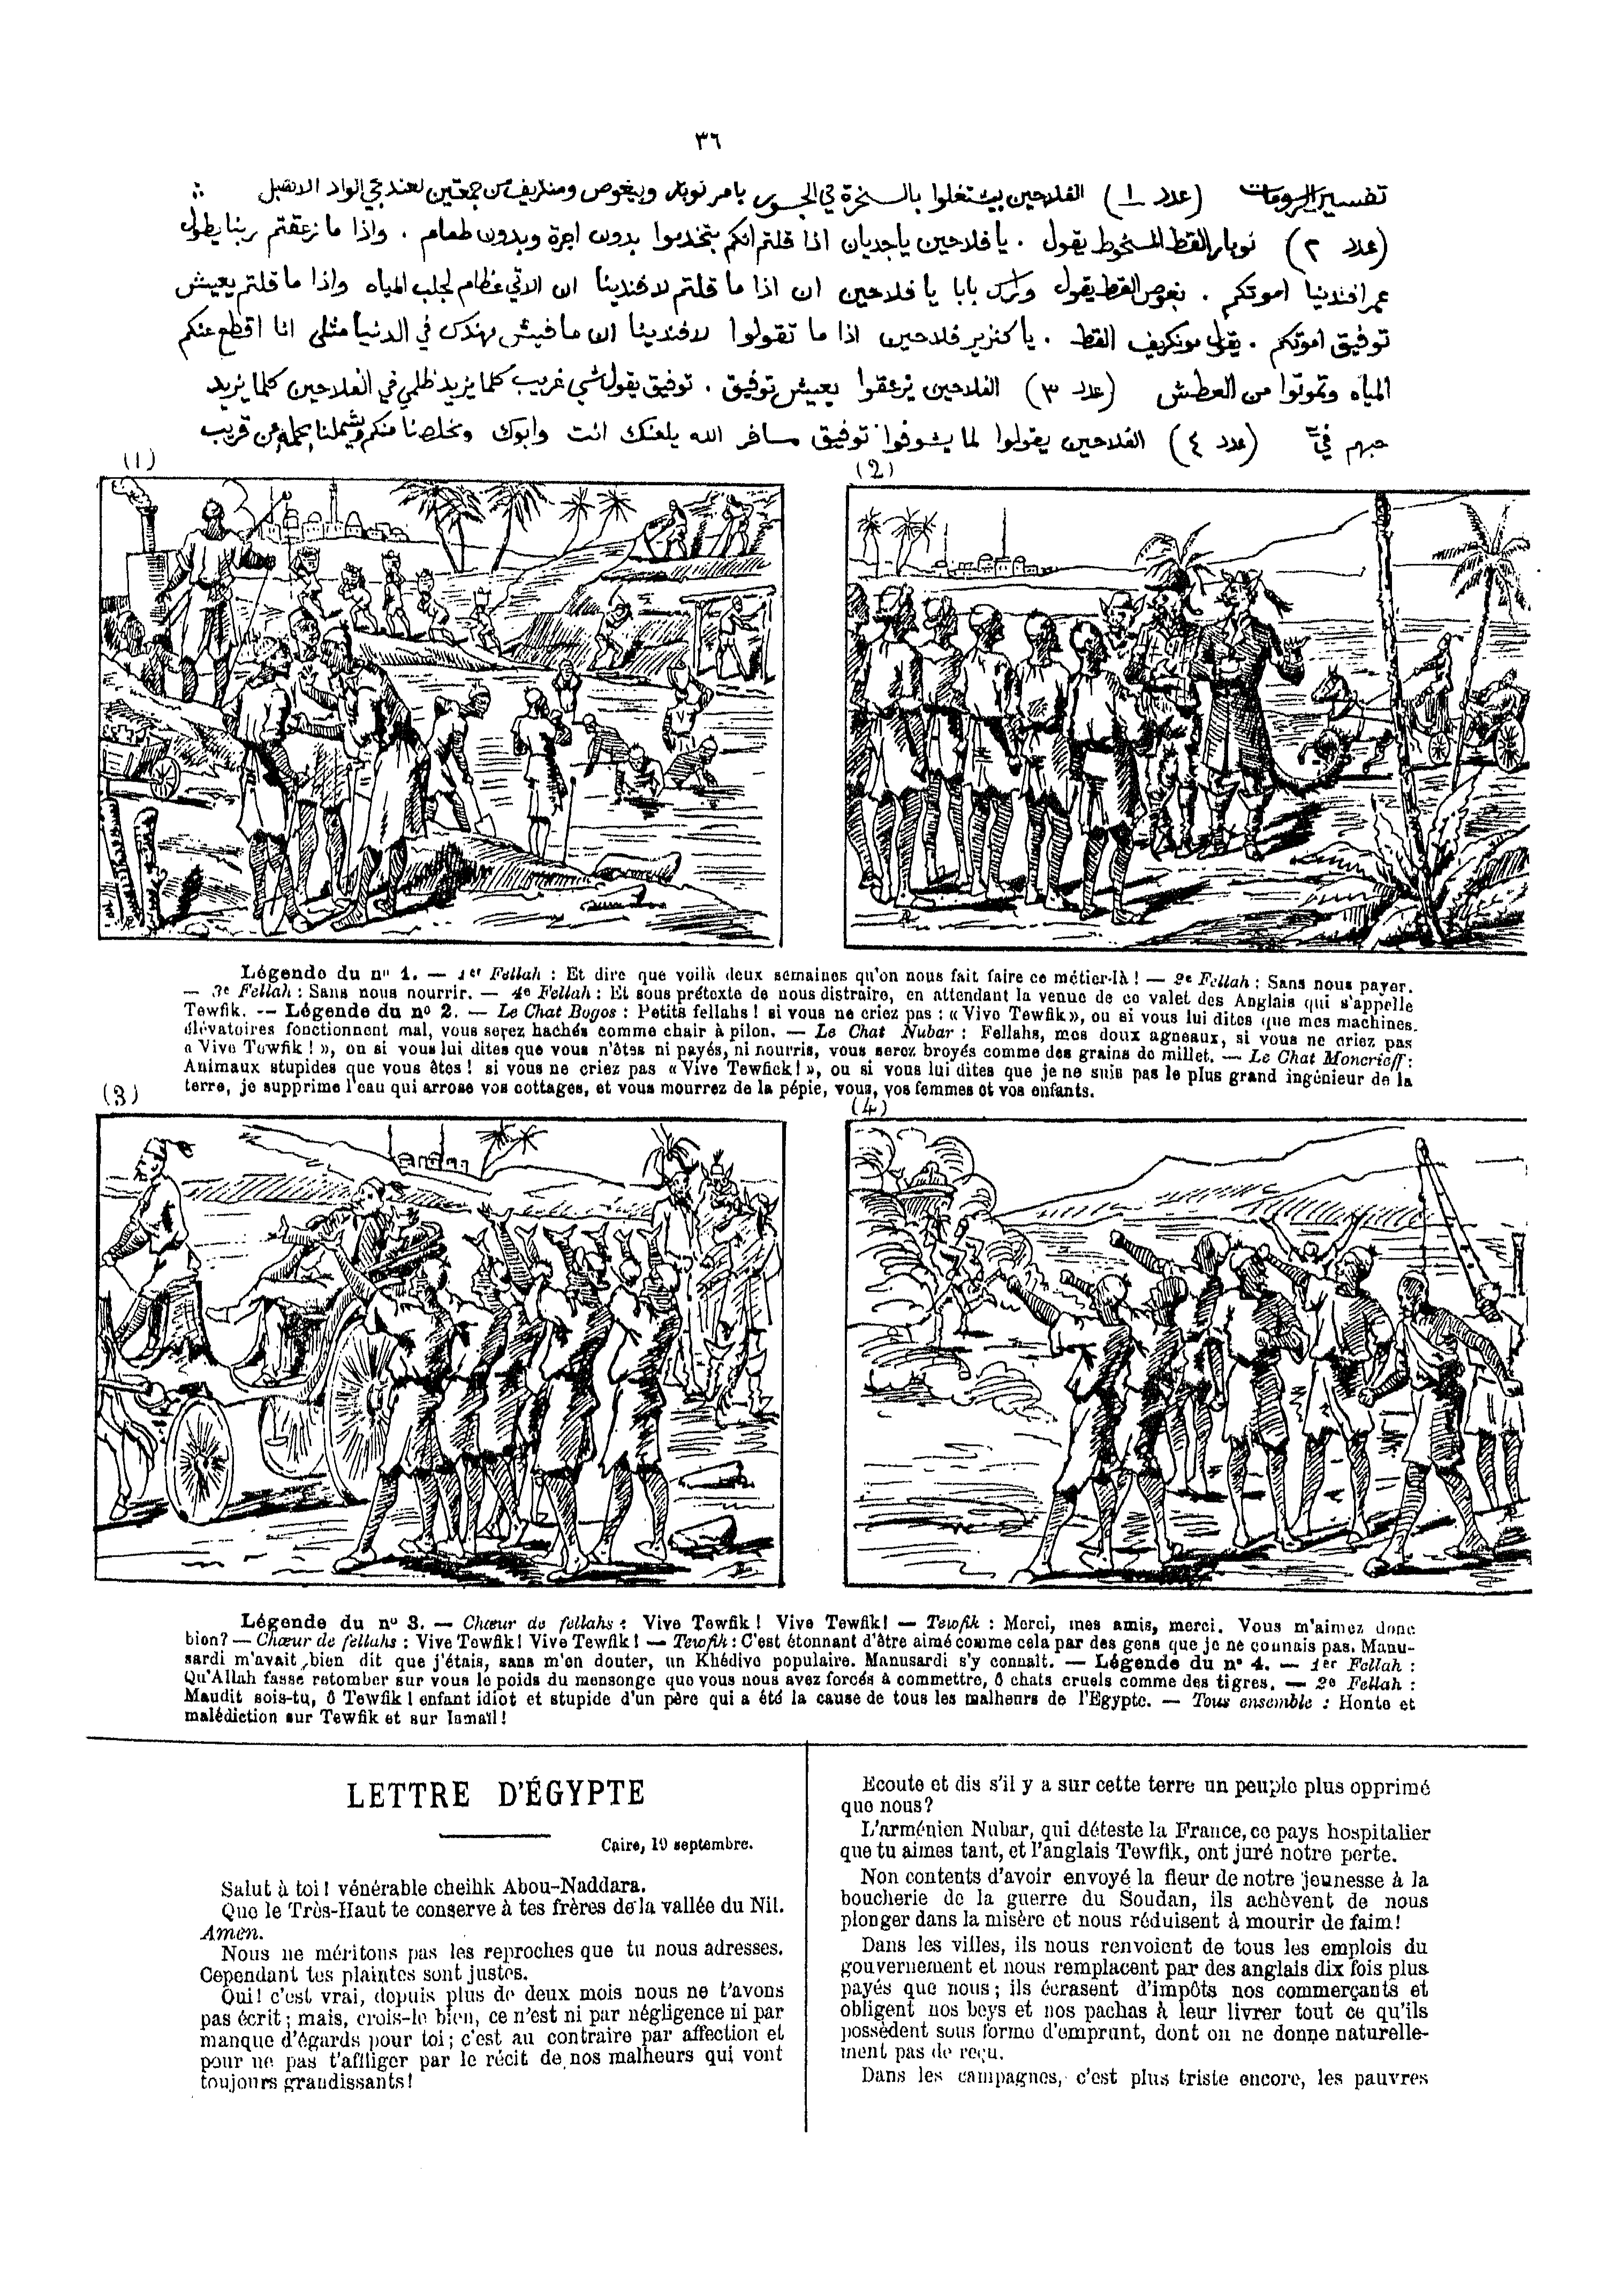 ٣٦
تفسير الرسومات (عدد ١) الفلاحين بيشتغلوا بالسخرة في الجسور بامر نوبار وبيغوص ومنكريف من جمعتين لعند مجي الواد الاهبل
(عدد ٢) نوبار القط المسخوط يقول . يا فلاحين يا جديان اذا قلتم انكم بتخدموا بدون اجرة وبدون طعام . واذا ما زعقتم ربنا يطول
عمر افندينا اموتكم . بغوص القط يقول بابا يا فلاحين ان اذا ما قلتم لافندينا ان الاتي عظام لجلب المياه واذا ما قلتم يعيش
توفيق اموتكم . يقول مونكريف القط . يا كنزير فلاحين اذا ما تقولوا لافندينا ان ما فيش مهندس في الدنيا مثلي انا اقطع عنكم
المياه وتموتوا من العطش (عدد ٣) الفلاحين يزعقوا يعيش توفيق . توفيق يقول شي غريب كلما يزيد ظلمي في الفلاحين كلما يزيد
حبهم فيّ (عدد ٤) الفلاحين يقولوا لما يشوفوا توفيق مسافر الله يلعنك انت وابوك ويخلصنا منكم من قريب
(1)
(2)
Légende du nº 1. — 1er Fellah : Et dire que voilà deux semaines qu'on nous fait faire ce métier-là ! — 2e Fellah : Sans nous payer.
— 3e Fellah : Sans nous nourrir. — 4e Fellah : Et sous prétexte de nous distraire, en attendant la venue de ce valet des Anglais qui s'appelle
Tewfik. — Légende du nº 2. — Le Chat Bogos : Petits fellahs ! si vous ne criez pas : « Vive Tewfik », ou si vous lui dites que mes machines
élévatoires fonctionnent mal, vous serez hachés comme chair à pilon. — Le Chat Nubar : Fellahs, mes doux agneaux, si vous ne criez pas
« Vive Tewfik ! », ou si vous lui dites que vous n'êtes ni payés, ni nourris, vous serez broyés comme des grains de millet. — Le Chat Moncrieff :
Animaux stupides que vous êtes ! si vous ne criez pas « Vive Tewfick ! », ou si vous lui dites que je ne suis pas le plus grand ingénieur de la
terre, je supprime l'eau qui arrose vos cottages, et vous mourrez de la pépie, vous, vos femmes et vos enfants.
(3)
(4)
Légende du nº 3. — Chœur de fellahs : Vive Tewfik ! Vive Tewfik ! — Tewfik : Merci, mes amis, merci. Vous m'aimez donc
bien ? — Chœur de fellahs : Vive Tewfik ! Vive Tewfik ! — Tewfik : C'est étonnant d'être aimé comme cela par des gens que je ne connais pas. Manu-
sardi m'avait bien dit que j'étais, sans m'en douter, un Khédive populaire. Manusardi s'y connaît. — Légende du nº 4. — 1er Fellah :
Qu'Allah fasse retomber sur vous le poids du mensonge que vous nous avez forcés à commettre, ô chats cruels comme des tigres. — 2e Fellah :
Maudit sois-tu, ô Tewfik ! enfant idiot et stupide d'un père qui a été la cause de tous les malheurs de l'Egypte. — Tous ensemble : Honte et
malédiction sur Tewfik et sur Ismaïl !
LETTRE D'ÉGYPTE
Caire, 19 septembre.
Salut à toi ! vénérable cheihk Abou-Naddara.
Que le Très-Haut te conserve à tes frères de la vallée du Nil.
Amen.
Nous ne méritons pas les reproches que tu nous adresses.
Cependant tes plaintes sont justes.
Oui ! c'est vrai, depuis plus de deux mois nous ne t'avons
pas écrit ; mais, crois-le bien, ce n'est ni par négligence ni par
manque d'égards pour toi ; c'est au contraire par affection et
pour ne pas t'affliger par le récit de nos malheurs qui vont
toujours grandissants !
Ecoute et dis s'il y a sur cette terre un peuple plus opprimé
que nous ?
L'arménien Nubar, qui déteste la France, ce pays hospitalier
que tu aimes tant, et l'anglais Tewfik, ont juré notre perte.
Non contents d'avoir envoyé la fleur de notre jeunesse à la
boucherie de la guerre du Soudan, ils achèvent de nous
plonger dans la misère et nous réduisent à mourir de faim !
Dans les villes, ils nous renvoient de tous les emplois du
gouvernement et nous remplacent par des anglais dix fois plus
payés que nous ; ils écrasent d'impôts nos commerçants et
obligent nos beys et nos pachas à leur livrer tout ce qu'ils
possèdent sous forme d'emprunt, dont on ne donne naturelle-
ment pas de reçu.
Dans les campagnes, c'est plus triste encore, les pauvres